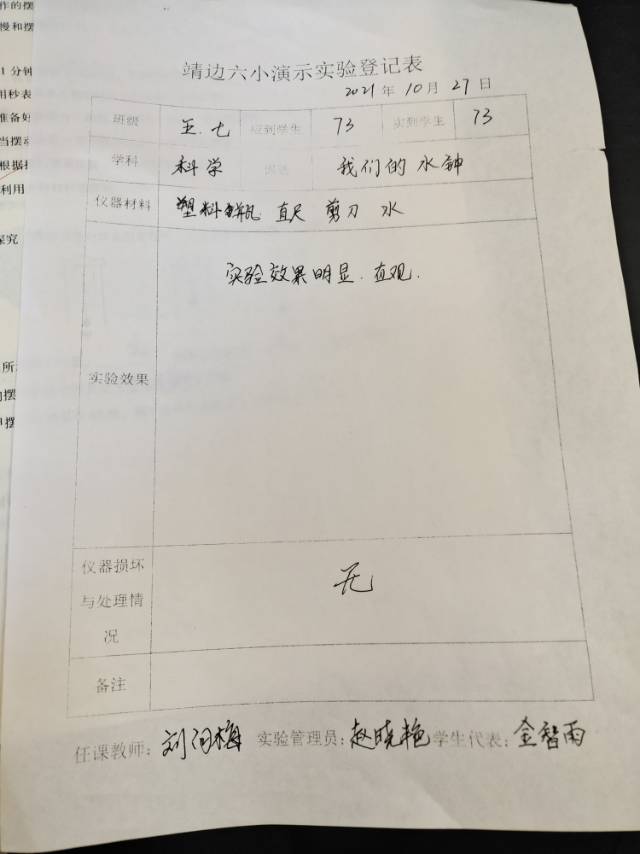 作的摆
慢和摆
1 分钟
用秒表
准备好
当摆动
根据
利用
探究
所
的摆
靖边六小演示实验登记表
2021 年 10 月 27 日
班级 五.七 应到学生 73 实到学生 73
学科 科学 课题 我们的水钟
仪器材料 塑料瓶 直尺 剪刀 水
实验效果 实验效果明显.直观.
仪器损坏
与处理情
况
无
备注
任课教师: 刘 梅 实验管理员: 赵晓艳 学生代表: 金智雨